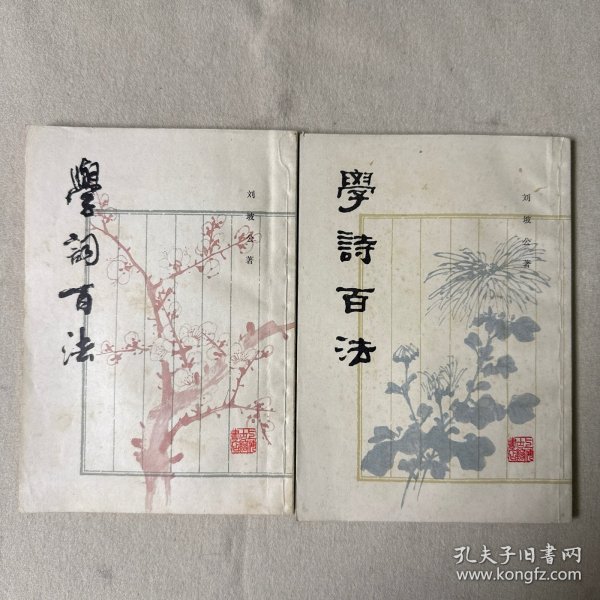 學詞百法
刘坡公著
學詩百法
刘坡公著
孔夫子旧书网
www.kongfz.com